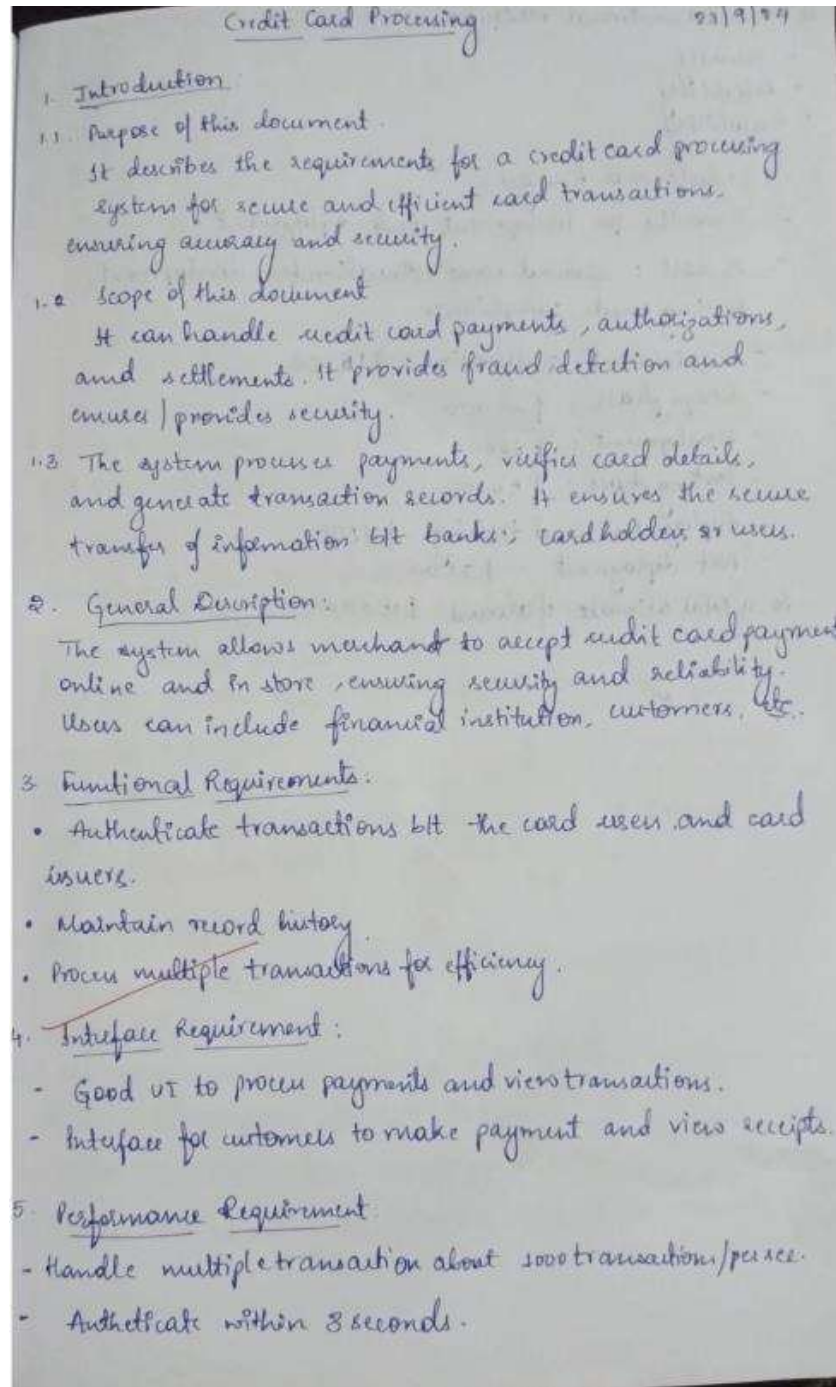 Credit Card Processing 23/9/24
1. Introduction:
1.1. Purpose of this document.
It describes the requirements for a credit card processing
system for secure and efficient card transactions.
ensuring accuracy and security.
1.2 Scope of this document
It can handle credit card payments, authorizations,
and settlements. It provides fraud detection and
ensures/provides security.
1.3 The system processes payments, verifies card details,
and generate transaction records. It ensures the secure
transfer of information b/t banks, cardholders or users.
2. General Description:
The system allows merchant to accept credit card payment
online and in store, ensuring security and reliability.
Users can include financial institution, customers, etc.
3 Functional Requirements:
• Authenticate transactions b/t the card users and card
issuers.
• Maintain record history.
• Process multiple transactions for efficiency.
4. Interface Requirement:
- Good UI to process payments and view transactions.
- Interface for customers to make payment and view receipts.
5. Performance Requirement:
- Handle multiple transaction about 1000 transactions/per sec.
- Autheticate within 3 seconds.